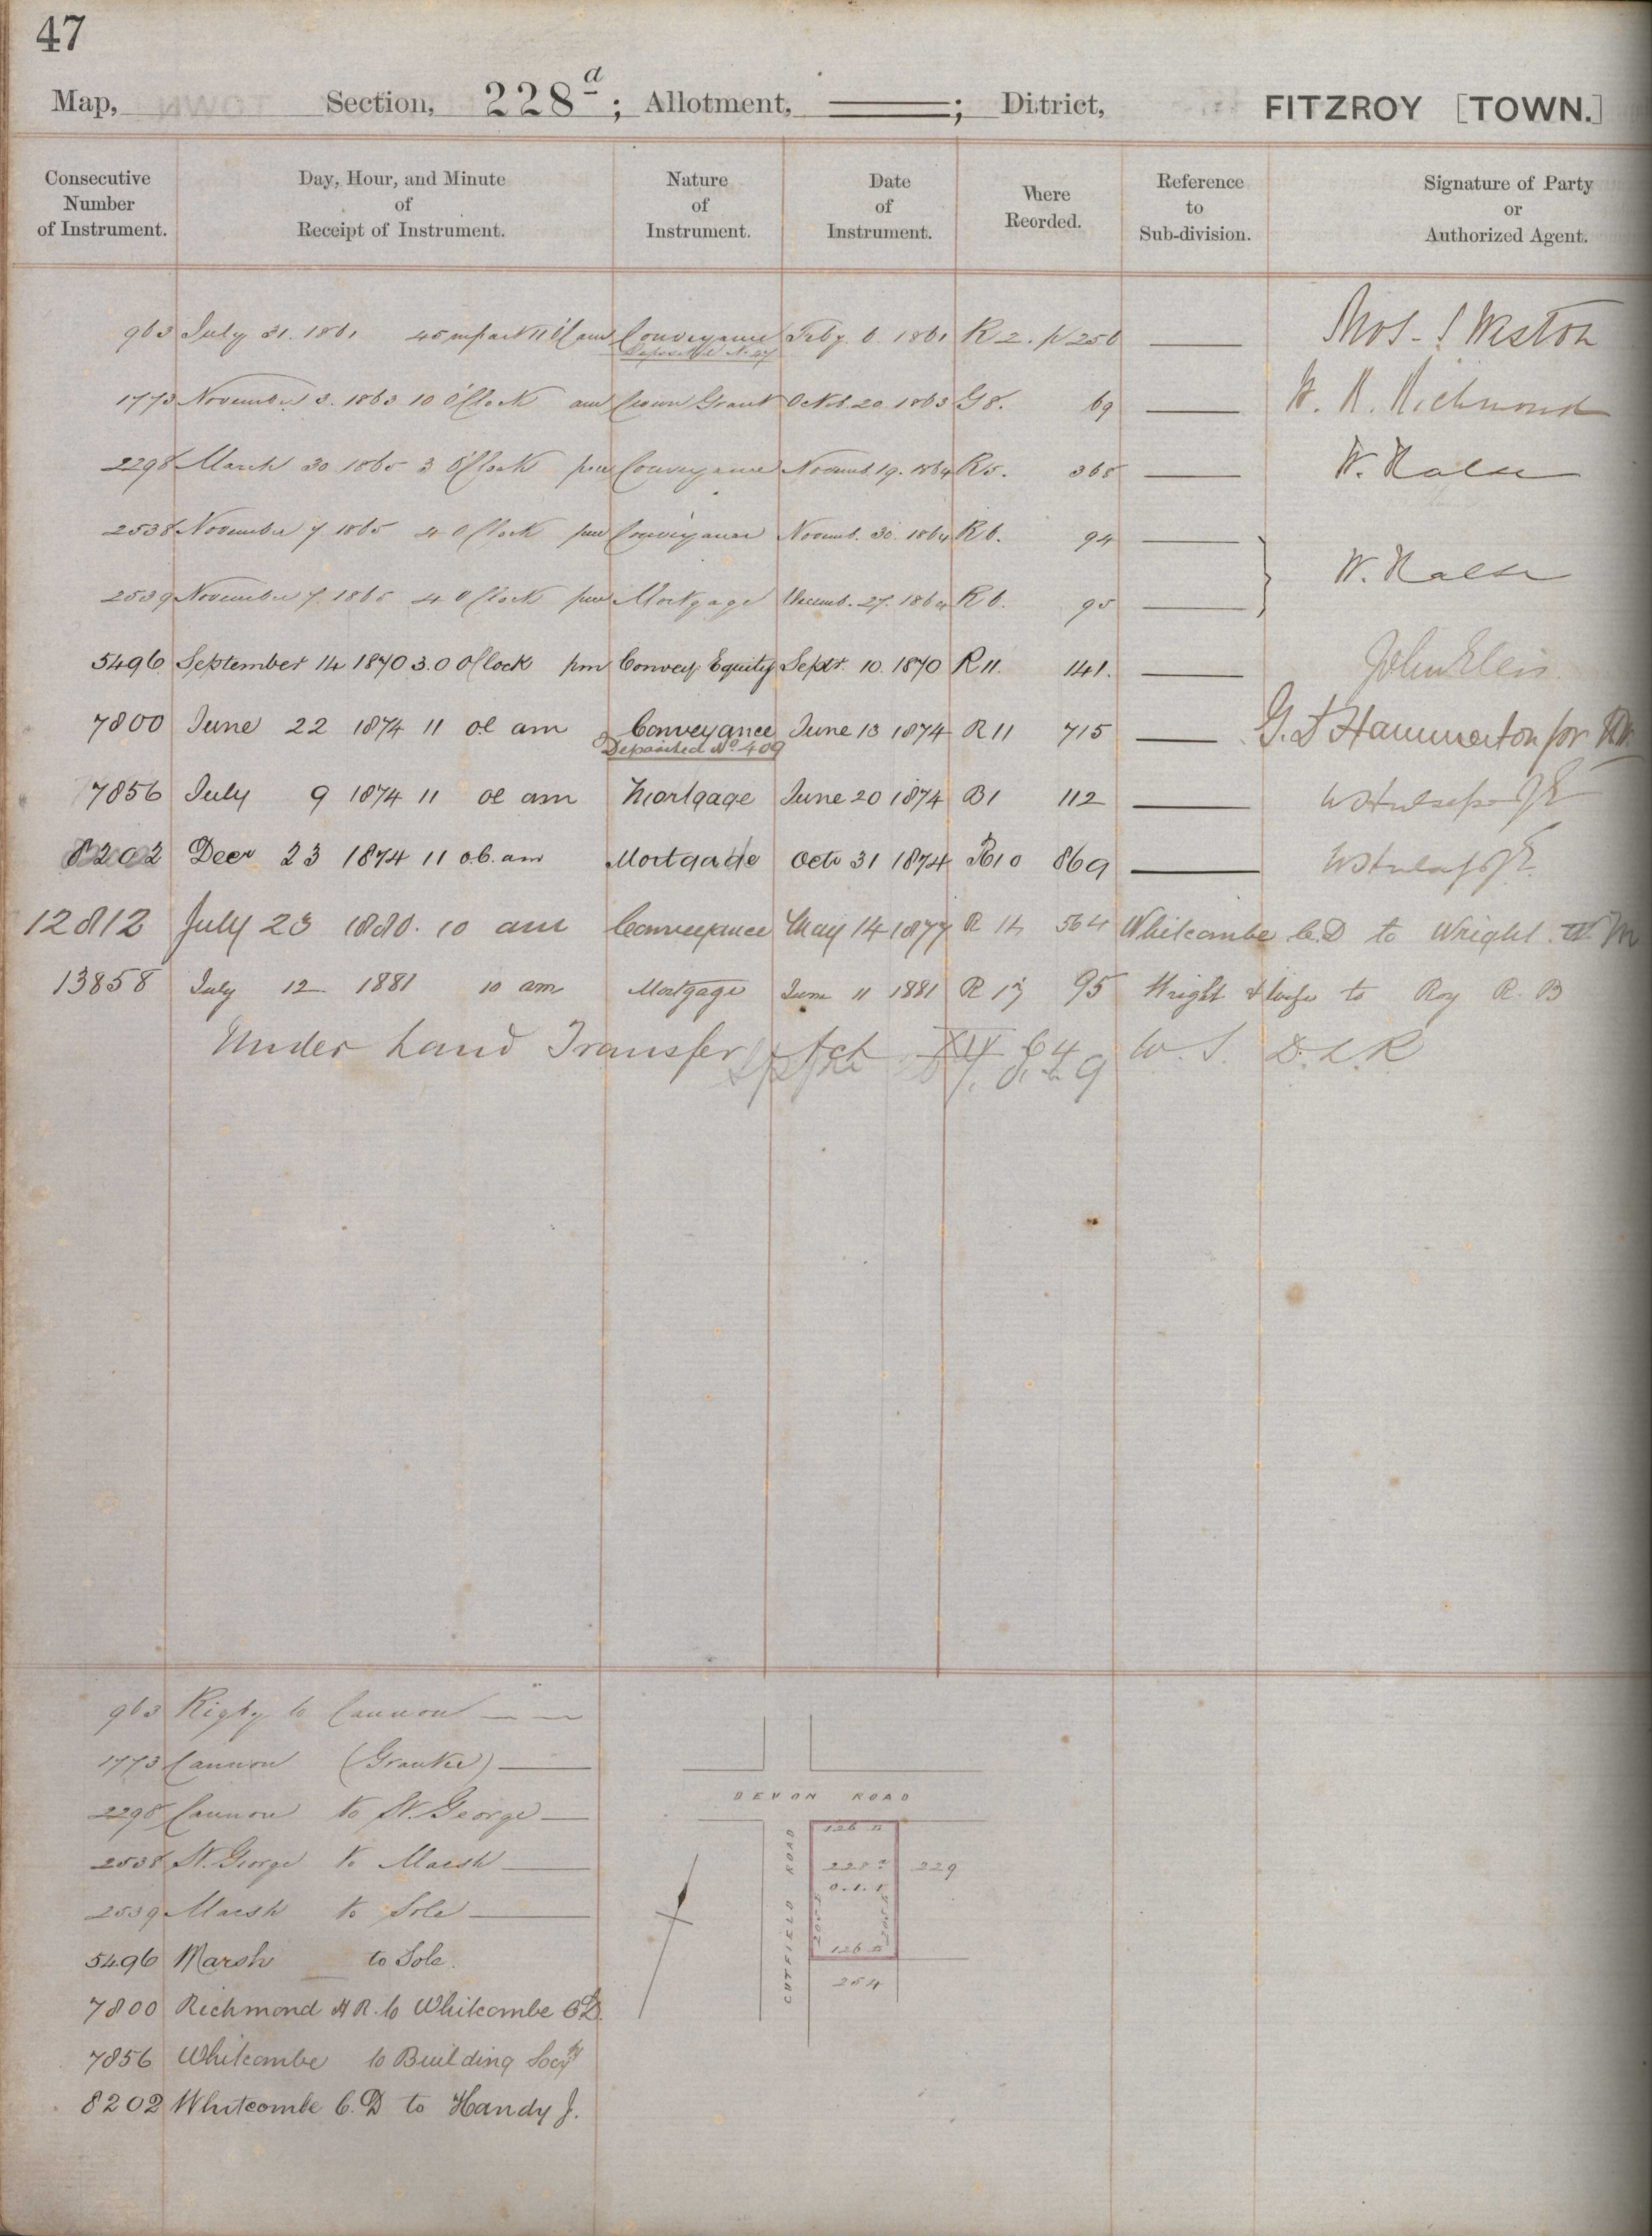 47
Map, Section, 228a ; Allotment, ; Ditrict, FITZROY [TOWN.]
Consecutive Number of Instrument. Day, Hour, and Minute of Receipt of Instrument. Nature of Instrument. Date of Instrument. Where Reorded. Reference to Sub-division. Signature of Party or Authorized Agent.
963 July 31. 1861 45 m past 11 am Conveyance Feby. 6. 1861 R 2. p 256 Thos. S Weston
Deposited No. 27
1773 November 3. 1863 10 O'Clock am Crown Grant Octob. 20. 1863 G 8. 69 Richmond
2298 March 30 1865 3 O'Clock pm Conveyance Novemb. 19. 1864 R 5. 368 W. Halse
2538 November 7 1865 4 O'Clock pm Conveyance Novemb. 30. 1864 R 6. 94
W. Halse
2539 November 7. 1865 4 O'Clock pm Mortgage Decemb. 27. 1864 R 6. 95
5496 September 14 1870 3.0 O'Clock pm Convey. Equity Septr. 10. 1870 R 11. 141. John Elein
7800 June 22 1874 11 oc am Conveyance June 13 1874 R 11 715 Hammerton for
Deposited No. 409
7856 July 9 1874 11 oc am Mortgage June 20 1874 B1 112
8202 Decr 23 1874 11 o.c. am Mortgage Octo 31 1874 R10 869
12812 July 23 1880. 10 am Conveyance May 14 1877 R 14 564 Whitcombe C.D to Wright
13858 July 12 1881 10 am Mortgage June 11 1881 R 17 95 Wright & wife to Roy R. B
Under Land Transfer Act W. S. D. L. R
963 Rigby to Cannon
1773 Cannon (Grantee)
2298 Cannon to St. George
2538 St. George to Marsh
2539 Marsh to Sole
5496 Marsh to Sole.
7800 Richmond H R. to Whitcombe C D.
7856 Whitcombe to Building Socy
8202 Whitcombe C. D to Handy J.
DEVON ROAD
CUTFIELD ROAD
126
228a
0.1.1
229
205
205
126
254